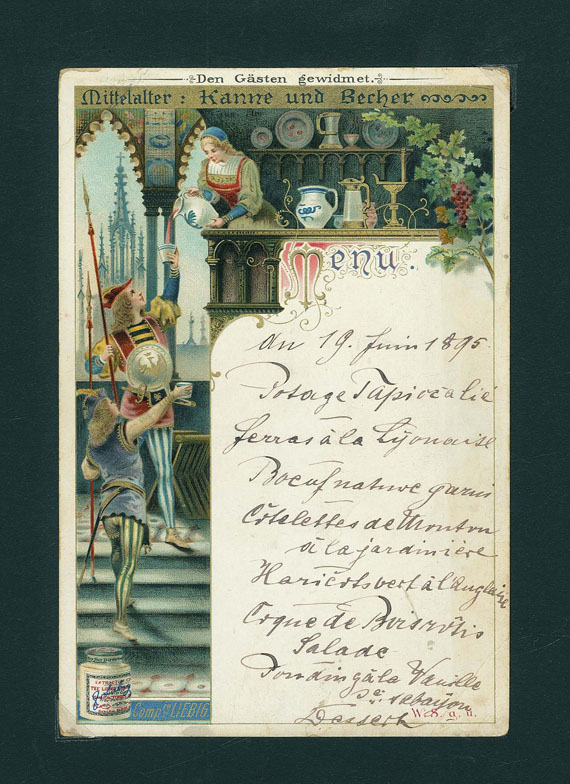 Den Gästen gewidmet.
Mittelalter: Kanne und Becher
Menu.
du 19. Juin 1895.
Potage Tapioca lié
ferras à la Lyonaise
Boeuf nature garni
Côtelettes de Monton
à la jardinière
Haricots vert à l'Anglaise
Coque de Bois rôtis
Salade
Pouding à la Vanille
sabayon
Dessert
W. S. g. u.
EXTRACTUM
Compie. LIEBIG